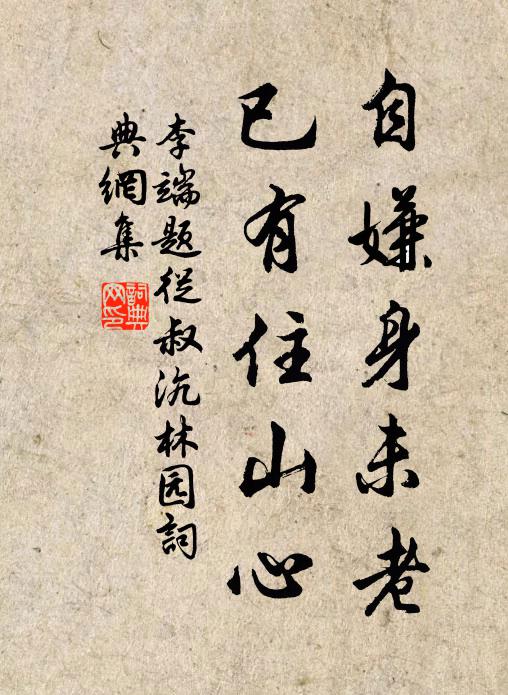 自嫌身未老
已有住山心
李端题從叔沆林园詞
典網集
詞典網印